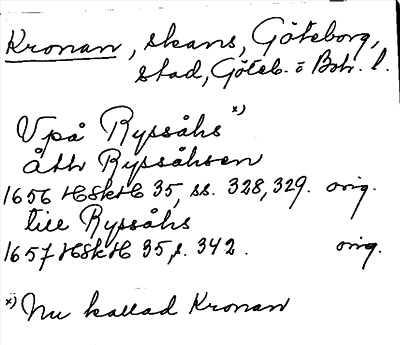 Kronan, skans, Göteborg,
stad, Göteb. o Boh. l.
Vpå Ryssåhs x)
Åth Ryssåhsen
1656 HSkH 35, ss. 328, 329. orig.
till Ryssåhs
1657 HSkH 35, s. 342. orig.
x) Nu kallad Kronan